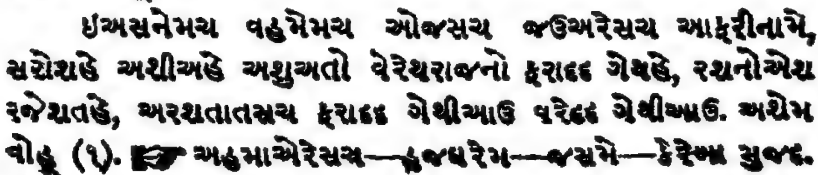 ઇઅસનેમચ વહમેમચ ઓજસચ જઉઅરેસચ આફરીનામે,
સરોશહે અશીઅહે અશુઅતો વેરેથરાજનો ફરાદદ ગેથહે, રશનોએશ
રજેશતહે, અરશતાતસચ ફરાદદ ગેથીઆઉ વરેદદ ગેથીઆઉ. અશેમ
વોહૂ (૧). ☞ અહમાએરેસચ—હજઘરેમ—જસમે—કેરેબા મુજદ.